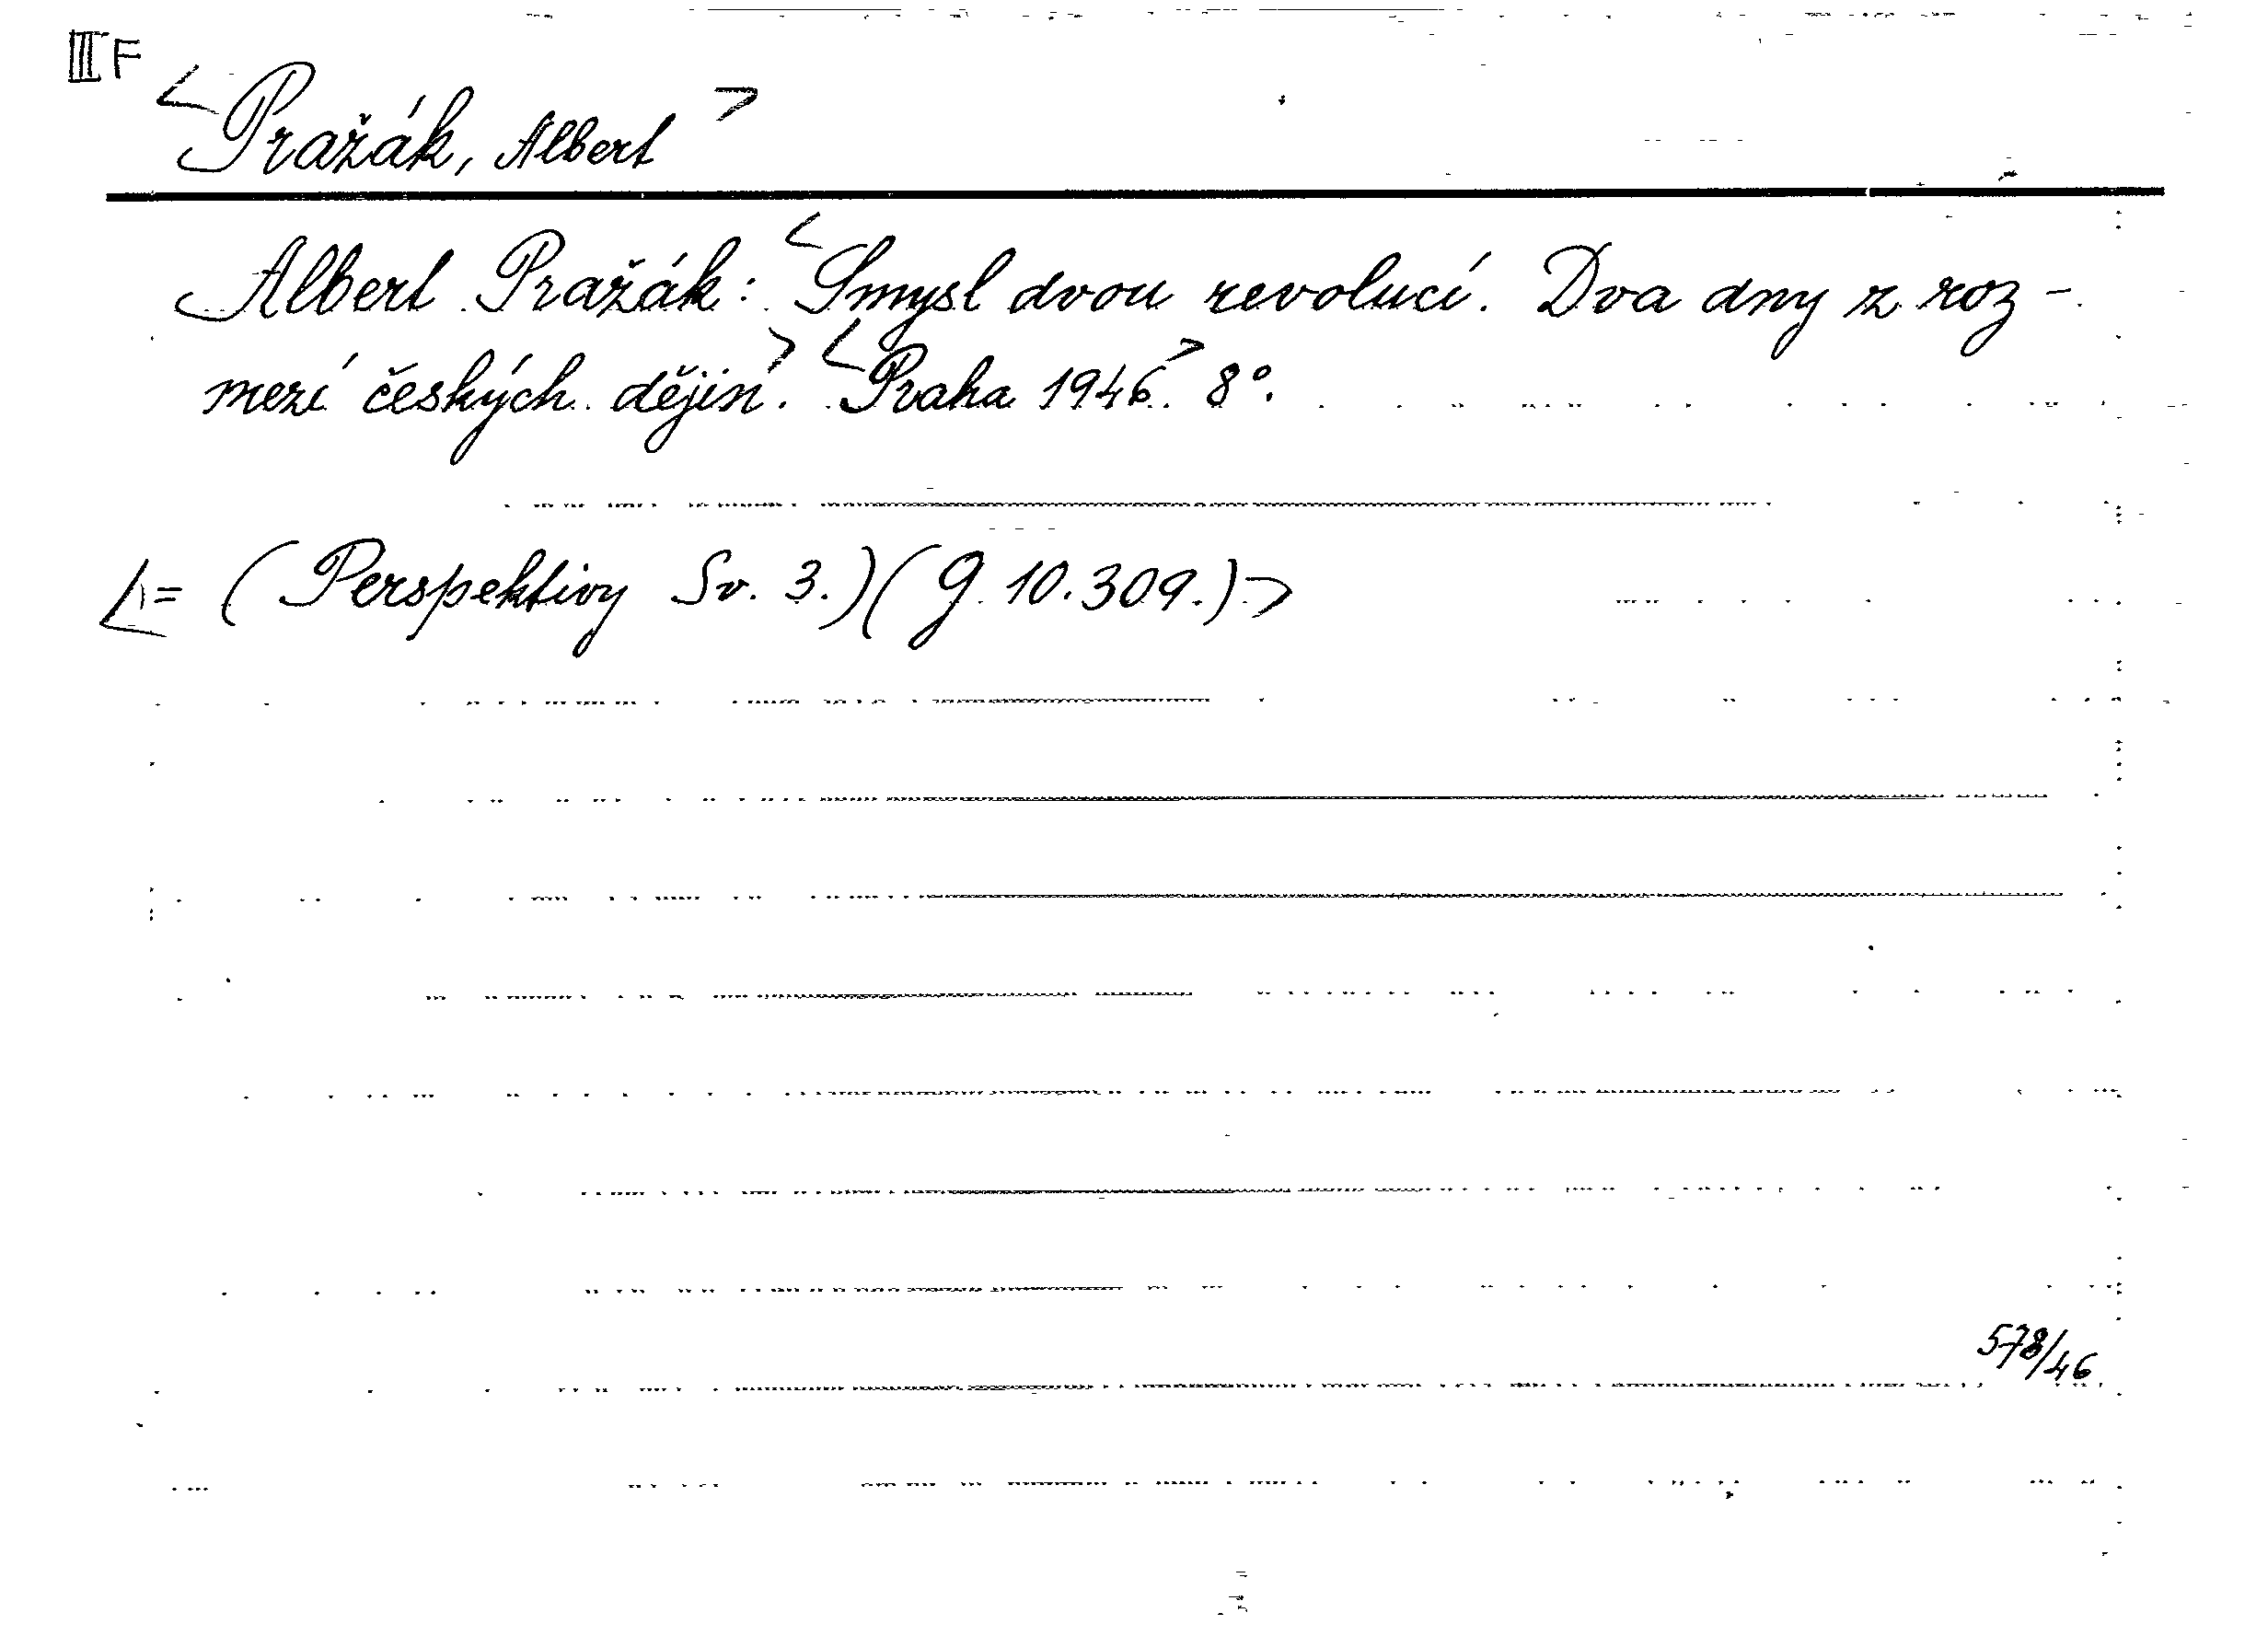 III F
<Pražák, Albert>
Albert Pražák: <Smysl dvou revolucí. Dva dny z roz-
mezí českých dějin.> <Praha 1946.> 8°.
<= (Perspektivy Sv. 3.) (g 10.309.)>
578/46